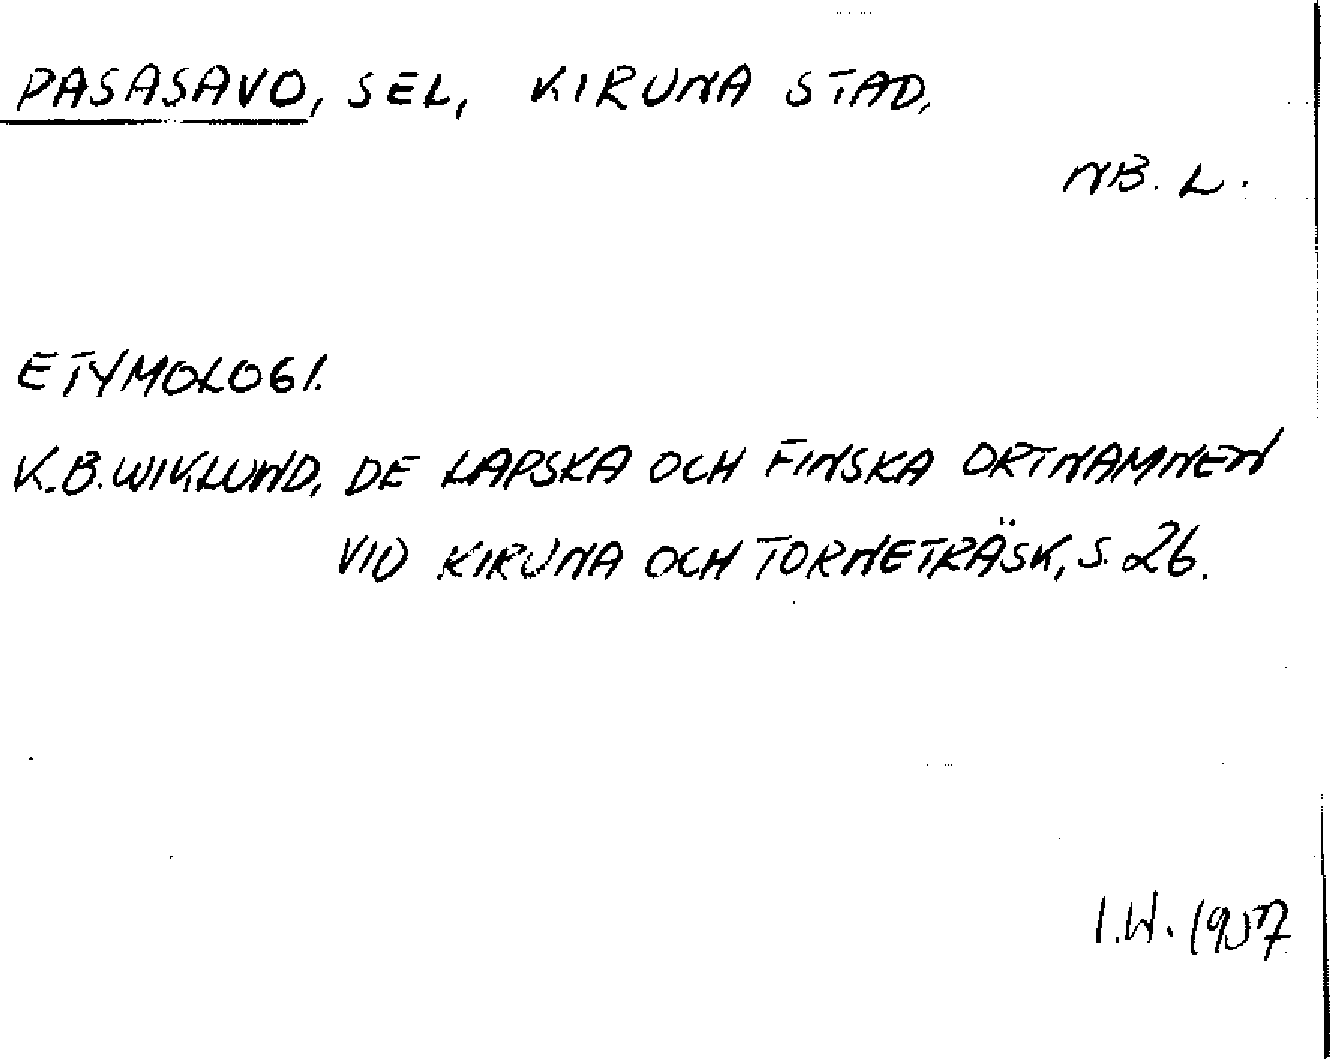 PASASAVO, SEL, KIRUNA STAD,
NB. L.
ETYMOLOGI.
K.B. WIKLUND, DE LAPSKA OCH FINSKA ORTNAMNEN
VID KIRUNA OCH TORNETRÄSK, S. 26.
I.W. 1957